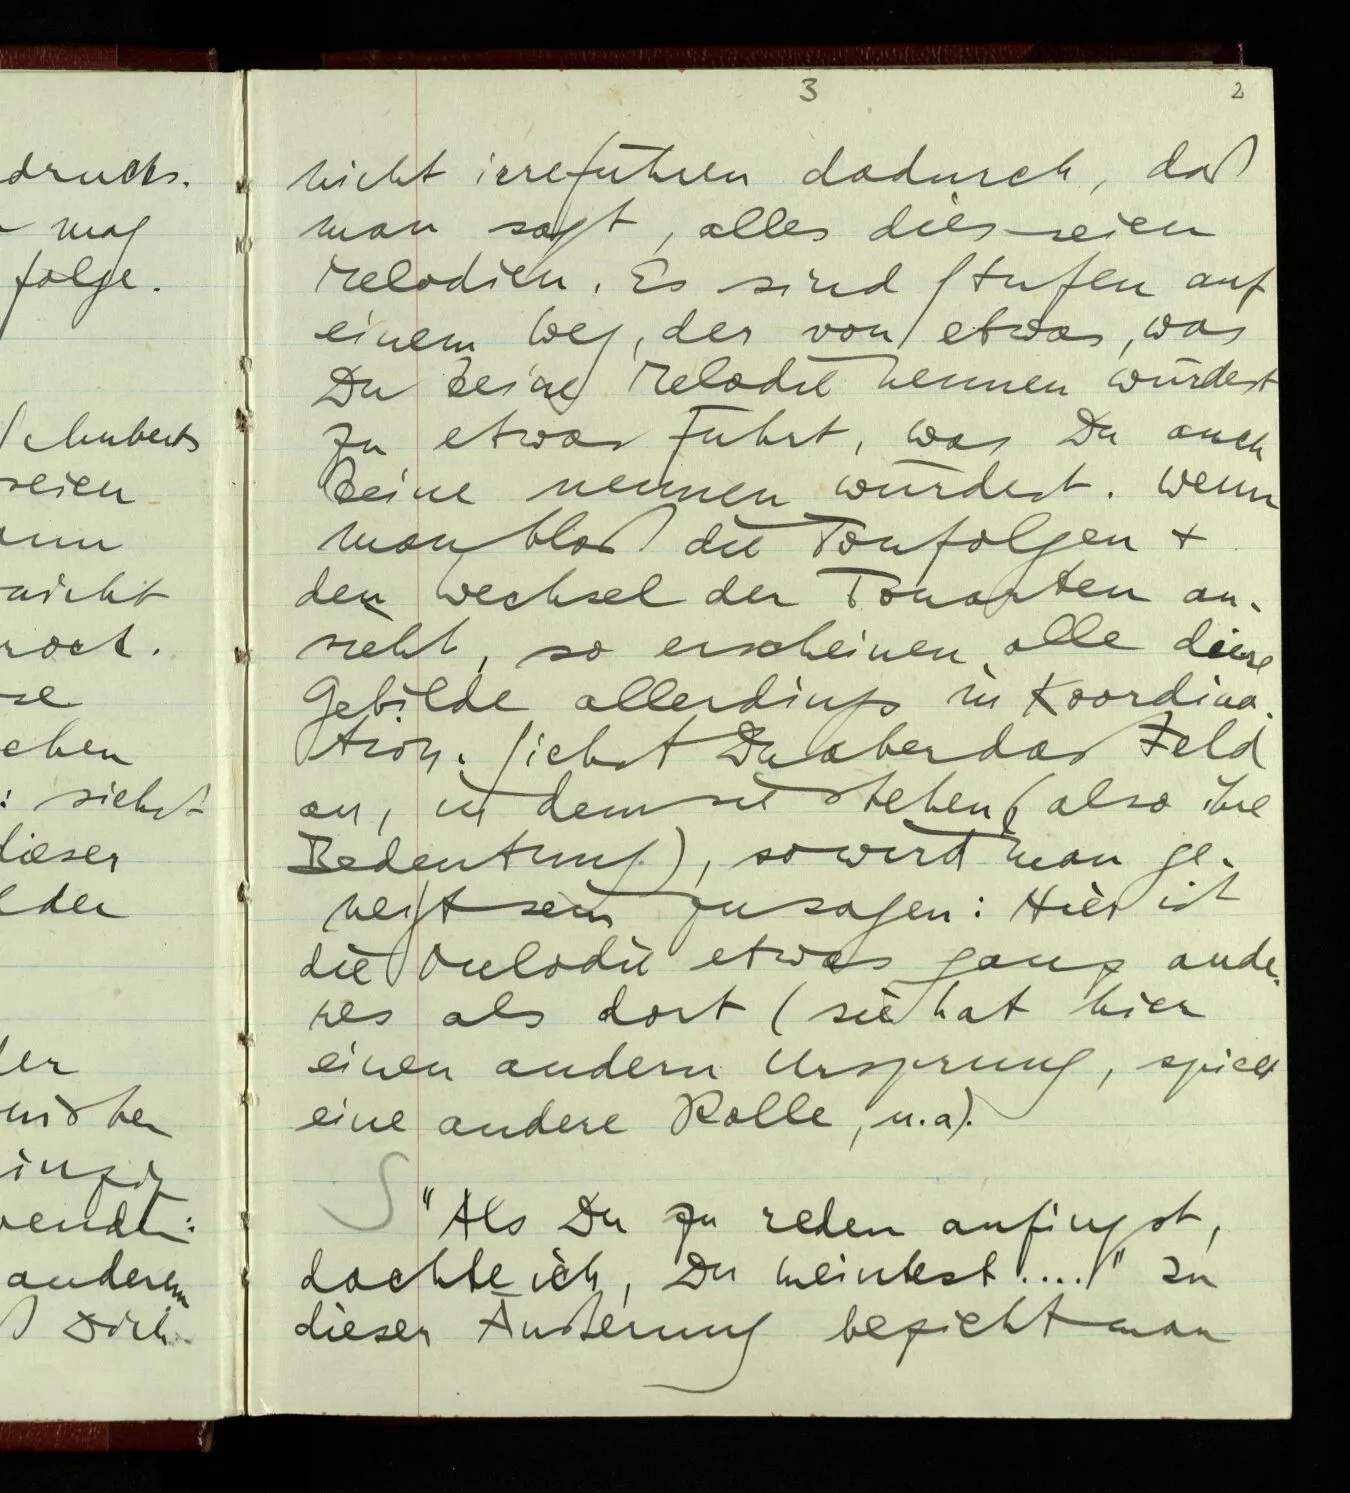 drucks.
mag
folge.
Schuberts
seien
nicht
se
chen
: siehst
dieser
lder
ler
wendet:
anderem
Dich
3
2
nicht irreführen dadurch, daß
man sagt, alles dies seien
Melodien. Es sind Stufen auf
einem Weg, der von etwas, was
Du keine Melodie nennen würdest
zu etwas führt, was Du auch
keine nennen würdest. Wenn
man bloß die Tonfolgen +
den Wechsel der Tonarten an-
sieht, so erscheinen alle diese
Gebilde allerdings in Koordina-
tion. Siehst Du aber das Feld
an, in dem sie stehen (also ihre
Bedeutung), so wird man ge-
neigt sein zu sagen: Hier ist
die Melodie etwas ganz ande-
res als dort (sie hat hier
einen andern Ursprung, spielt
eine andere Rolle, u.a).
S "Als Du zu reden anfingst,
dachte ich, Du meintest ...." Zu
dieser Äußerung bezieht man